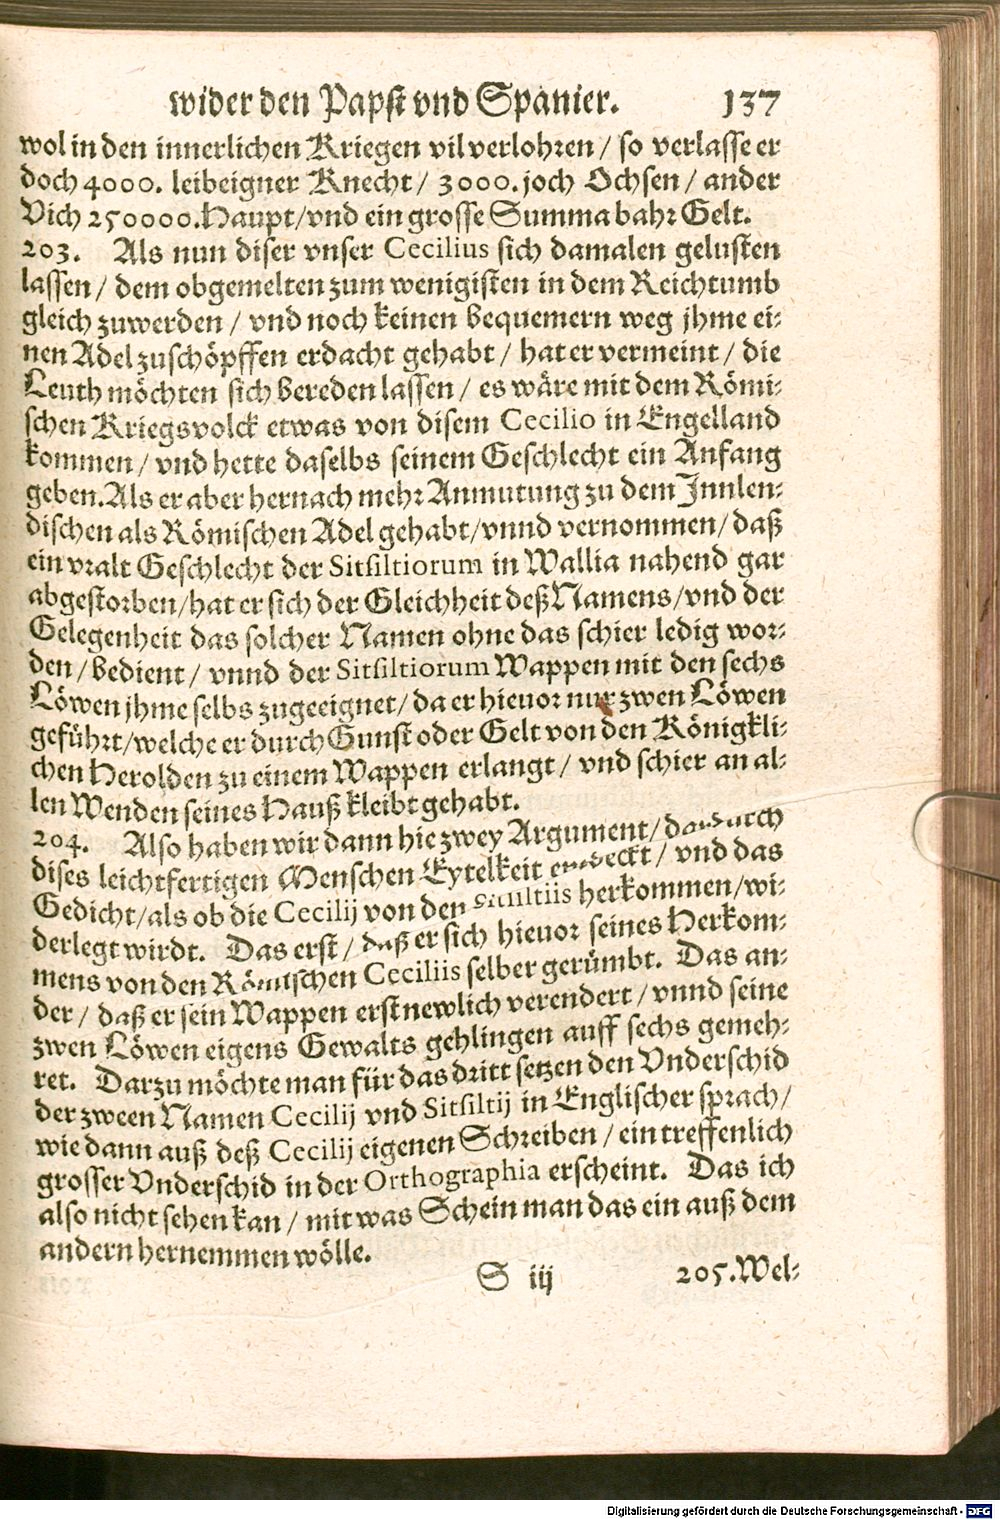 wider den Papst vnd Spanier. 137
wol in den innerlichen Kriegen vil verlohren / so verlasse er
doch 4000. leibeigner Knecht / 3000. joch Ochsen / ander
Vich 250000. Haupt / vnd ein grosse Summa bahr Gelt.
203. Als nun diser vnser Cecilius sich damalen gelusten
lassen / dem obgemelten zum wenigisten in dem Reichtumb
gleich zuwerden / vnd noch keinen bequemern weg jhme ei-
nen Adel zuschöpffen erdacht gehabt / hat er vermeint / die
Leuth möchten sich bereden lassen / es wäre mit dem Römi-
schen Kriegsvolck etwas von disem Cecilio in Engelland
kommen / vnd hette daselbs seinem Geschlecht ein Anfang
geben. Als er aber hernach mehr Anmutung zu dem Innlen-
dischen als Römischen Adel gehabt / vnnd vernommen / daß
ein vralt Geschlecht der Sitsiltiorum in Wallia nahend gar
abgestorben / hat er sich der Gleichheit deß Namens / vnd der
Gelegenheit das solcher Namen ohne das schier ledig wor-
den / bedient / vnnd der Sitsiltiorum Wappen mit den sechs
Löwen jhme selbs zugeeignet / da er hieuor nur zwen Löwen
geführt / welche er durch Gunst oder Gelt von den Königkli-
chen Herolden zu einem Wappen erlangt / vnd schier an al-
len Wenden seines Hauß kleibt gehabt.
204. Also haben wir dann hie zwey Argument /
dises leichtfertigen Menschen Eytelkeit entdeckt / vnd das
Gedicht / als ob die Cecilij von den herkommen / wi-
derlegt wirdt. Das erst / daß er sich hieuor seines Herkom-
mens von den Römischen Ceciliis selber gerümbt. Das an-
der / daß er sein Wappen erst newlich verendert / vnnd seine
zwen Löwen eigens Gewalts gehlingen auff sechs gemeh-
ret. Darzu möchte man für das dritt setzen den Vnderschid
der zween Namen Cecilij vnd Sitsiltij in Englischer sprach /
wie dann auß deß Cecilij eigenen Schreiben / ein treffenlich
grosser Vnderschid in der Orthographia erscheint. Das ich
also nicht sehen kan / mit was Schein man das ein auß dem
andern hernemmen wölle.
S iij 205. Wel-
Digitalisierung gefördert durch die Deutsche Forschungsgemeinschaft - DFG